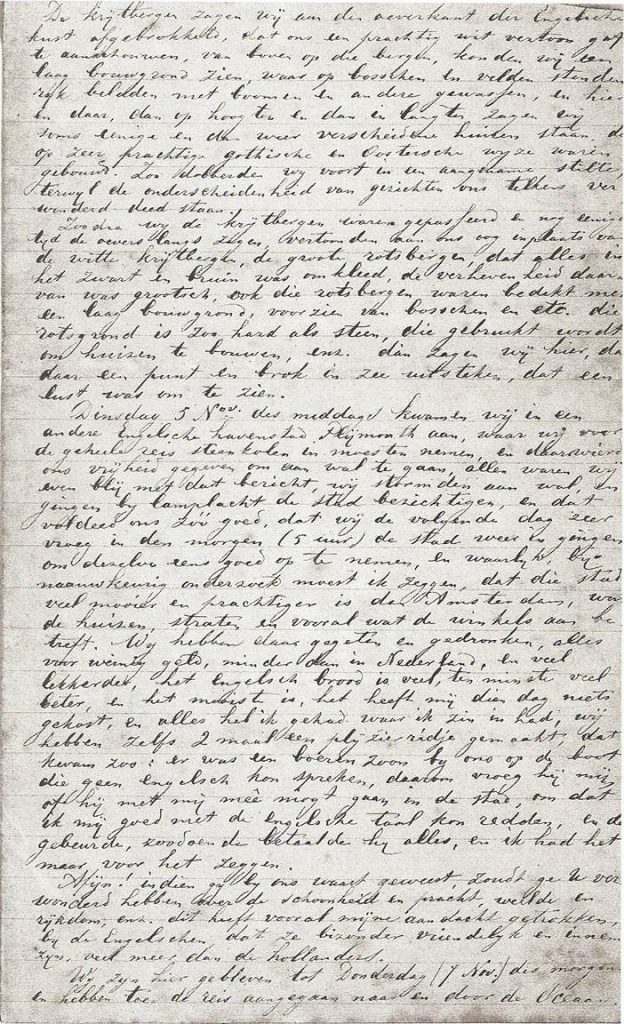 De krijtbergen zagen wij aan den oeverkant der Engelsche
kust afgebrokkeld, dat ons een prachtig wit vertoon gaf
te aanschouwen, van boven op die bergen, konden wij een
laag bouwgrond zien, waar op bosschen en velden stonden
rijk beladen met boomen en andere gewassen, en hier
en daar, dan op hoogten en dan in laagten zagen wij
soms eenige en dan weer verscheidene huizen staan, die
op zeer prachtige gothische en Oostersche wijze waren
gebouwd. Zoo dobberden wij voort in een aangename stilte,
terwijl de onderscheidenheid van gezichten ons telkens ver
wonderd deed staan.
Zoodra wij de krijtbergen waren gepasseerd en nog eenige
tijd de oevers langs zagen, vertoonden aan ons oog inplaats van
de witte krijtbergen, de groote rotsbergen, dat alles in
het zwart en bruin was omkleed, de verhevenheid daar
van was grootsch, ook die rotsbergen waren bedekt met
een laag bouwgrond, voorzien van bosschen en etc. die
rotsgrond is zoo hard als steen, die gebruikt wordt
om huizen te bouwen, enz. dan zagen wij hier, dan
daar een punt en brok in zee uitsteken, dat een
lust was om te zien.
Dinsdag 5 Nov. des middags kwamen wij in een
andere Engelsche havenstad Plijmouth aan, waar wij voor
de geheele reis steenkolen in moesten nemen, en daar wierd
ons vrijheid gegeven om aan wal te gaan, allen waren wij
even blij met dat bericht, wij stormden aan wal, en
gingen by lamplicht de stad bezichtigen, en dat
voldeed ons zoo goed, dat wij de volgende dag zeer
vroeg in den morgen (5 uur) de stad weer in gingen
om dezelve eens goed op te nemen, en waarlijk bij
naauwkeurig onderzoek moest ik zeggen, dat die stad
veel mooier en prachtiger is dan Amsterdam, wat
de huizen, straten en vooral wat de winkels aan be
treft. Wij hebben daar gegeten en gedronken, alles
voor weinig geld, minder dan in Nederland, en veel
lekkerder, het Engelsch brood is veel, ten minste veel
beter, en het mooiste is, het heeft mij dien dag niets
gekost, en alles heb ik gehad waar ik zin in had, wij
hebben zelfs 2 maal een plyzierridje gemaakt, dat
kwam zoo: er was een boeren zoon by ons op de boot
die geen Engelsch kon spreken, daarom vroeg hij mij,
of hij met mij meê mogt gaan in de stad, om dat
ik mij goed met de engelsche taal kon redden, en dat
gebeurde, zoodoende betaalde hij alles, en ik had het
maar voor het zeggen.
Mijn. indien gij by ons waart geweest, zoudt ge U ver
wonderd hebben over de schoonheid en pracht, weelde en
rijkdom, enz. dit heeft vooral mijne aandacht getrokken,
by de Engelschen, dat ze bizonder vriendelijk en innem
zijn, veel meer dan de hollanders.
Wij zijn hier gebleven tot Donderdag (7 Nov.) des morgens
en hebben toe de reis aangegaan naar en door de Oceaan.